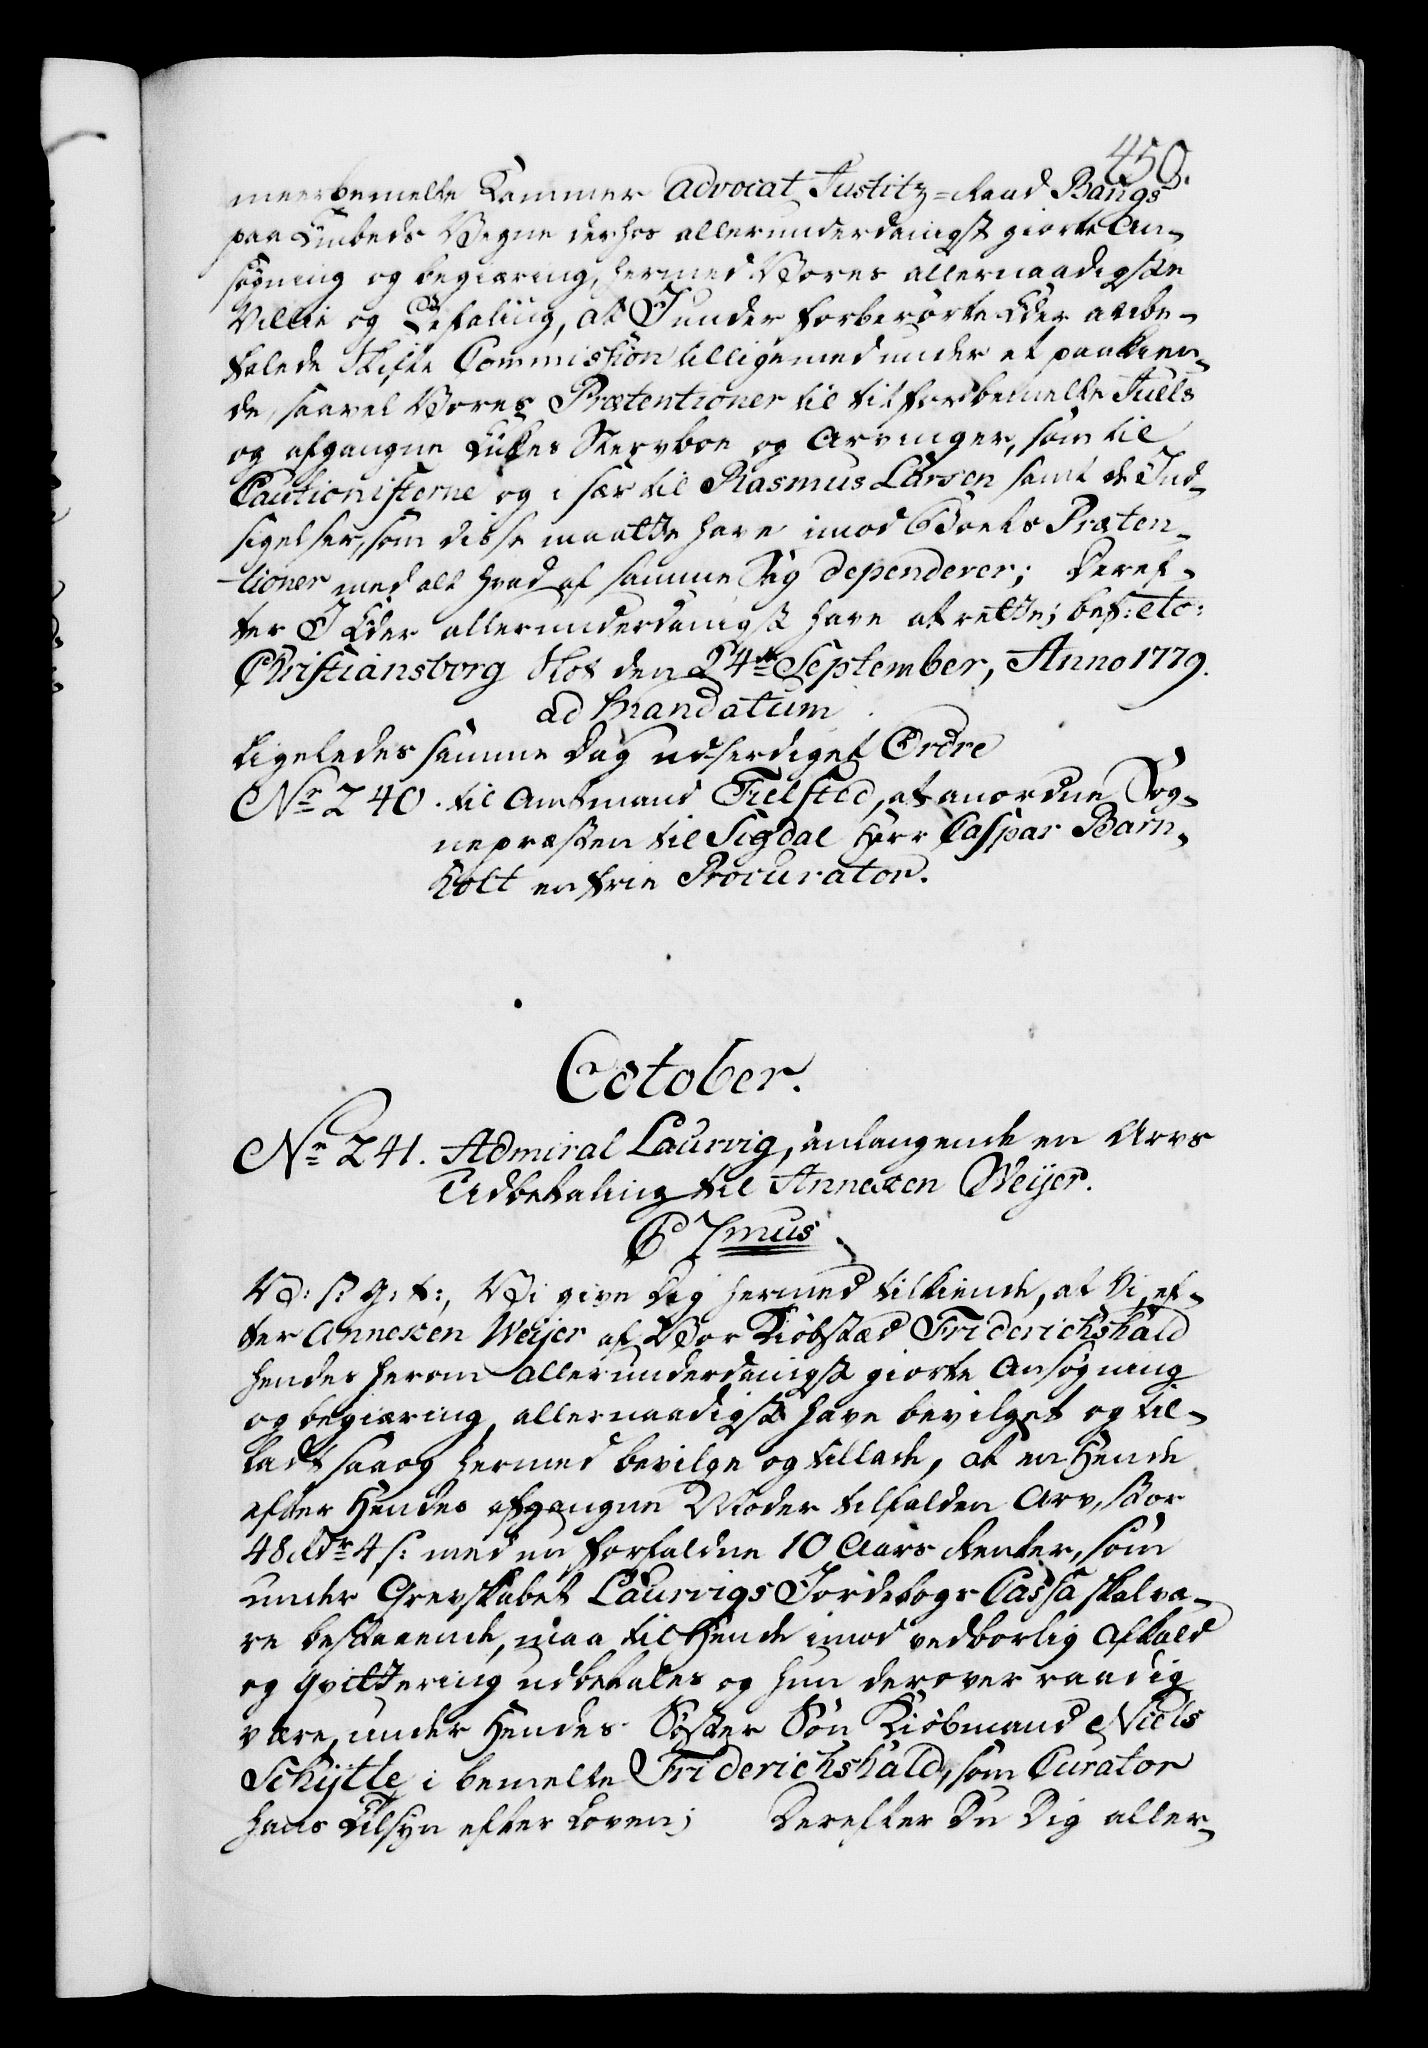 450.
meerbemelte Kammer Advocat Justitz-Raad Bangs
paa Embeds Vegne derhos allerunderdanigst giorte An-
søgning og begiæring, hermed Vores allernaadigste
Villie og Befaling, at I under forberørte Eder anbe-
falede Skifte Commission tilligemed under et paakien-
de, saavel Vores Prætentioner til titfordbemelte Juels
og afgangne Lükes Stervboe og Arvinger, som til
Cautionisterne og i sær til Rasmus Larsen samt de Ind-
sigelser, som disse maatte have imod Vores Præten-
tioner med alt hvad af samme Sag dependerer; Deref-
ter I Eder allerunderdanigst have at rette; bef: etc:
Christiansborg Slot den 24de September, Anno 1779.
ad Mandatum
Ligeledes samme Dag udferdiget Ordre
No 240. til Amtmand Tielsted, at anordne Sog-
nepræsten til Sigdal Herr Caspar Barn-
holt en frie Procurator.
October.
No 241. Admiral Laurvig, anlangende en Arvs
Udbetaling til Annexen Weijer.
C 7mus
V: S: G: T:, Vi give Dig hermed tilkiende, at Vi, ef-
ter Annexen Weijer af Vor Kiøbstæd Friderichshald
hendes herom allerunderdanigst giorte Ansøgning
og begiæring, allernaadigst have bevilget og til-
ladt saa og hermed bevilge og tillade, at en Hende
efter Hendes afgangne Moder tilfalden Arv, stor
48 Rdr 4 s: med en forfaldne 10 Aars Renter, som
under Grevskabet Laurvigs Jordebogs Cassa skal væ-
re bestaaende, maa til Hende imod vedborlig Afkald
og Qvittering udbetales og hun derover raadig
være, under Hendes Søster Søn Kiøbmand Niels
Schÿtte i bemelte Friderichshald, som Curator
hans Tilsyn efter Loven; Derefter Du Dig aller-